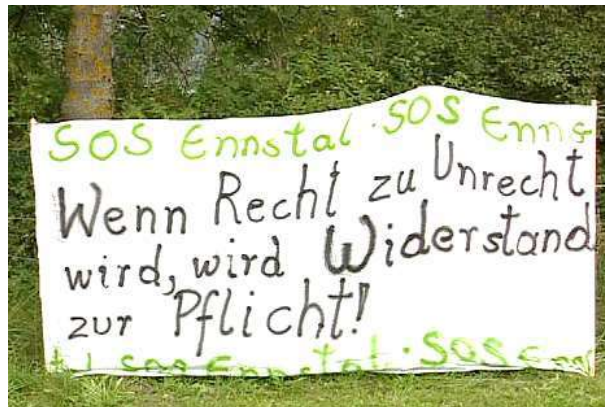 SOS Ennstal · SOS Enns
Wenn Recht zu Unrecht
wird, wird Widerstand
zur Pflicht!
tal SOS Ennstal · SOS Enns